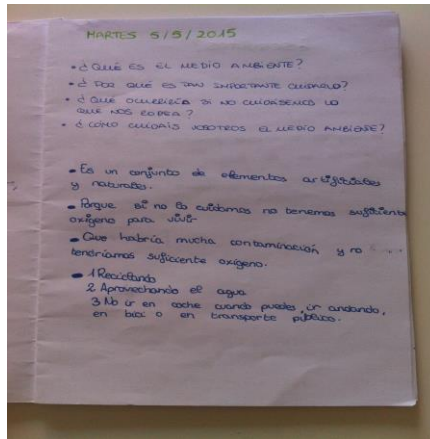 MARTES 5/5/2015
• ¿QUÉ ES EL MEDIO AMBIENTE?
• ¿POR QUÉ ES TAN IMPORTANTE CUIDARLO?
• ¿QUÉ OCURRIRÍA SI NO CUIDÁSEMOS LO
QUE NOS RODEA?
• ¿CÓMO CUIDAIS VOSOTROS EL MEDIO AMBIENTE?
• Es un conjunto de elementos artifitiales
y naturales.
• Porque si no lo cuidamos no tenemos sufitiente
oxígeno para vivir
• Que habría mucha contaminación y no
tendríamos suficiente oxígeno.
• 1 Reciclando
2 Aprovechando el agua
3 No ir en coche cuando puedes ir andando,
en bici o en transporte público.